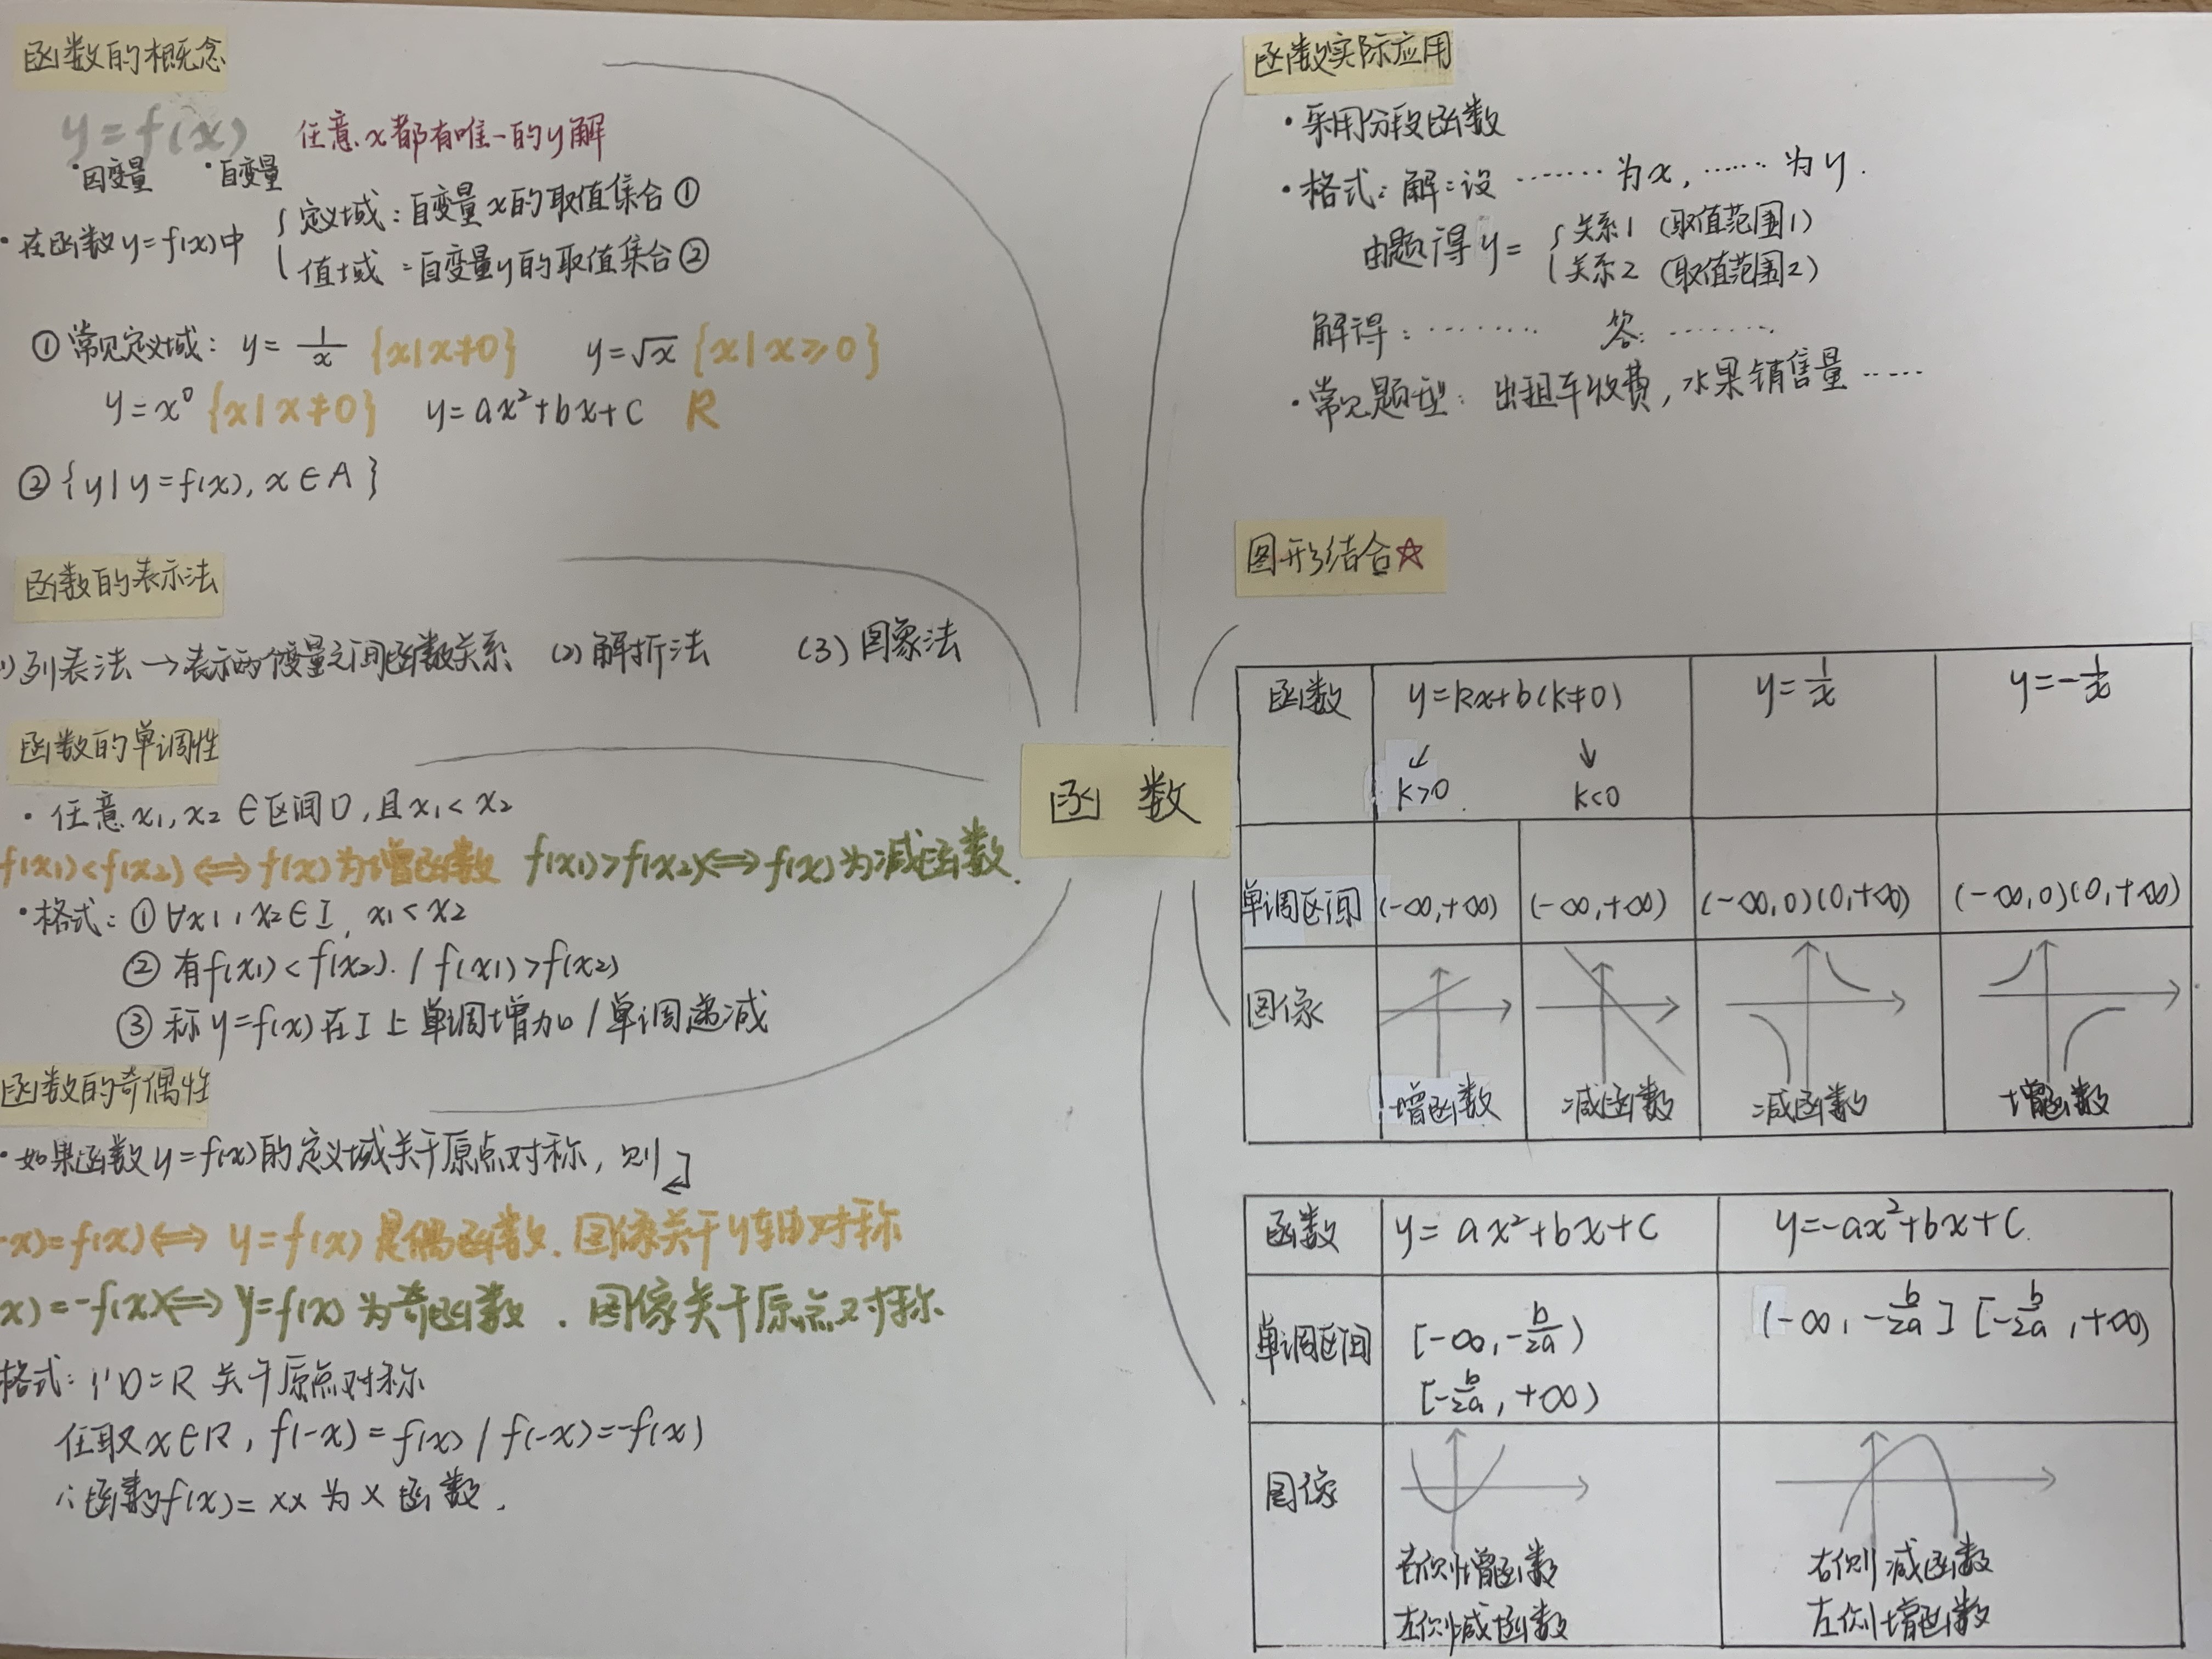 函数的概念
y=f(x) 任意x都有唯一的y解
·因变量 ·自变量
·在函数y=f(x)中
定义域:自变量x的取值集合①
值域:自变量y的取值集合②
①常见定义域: y=1/x {x|x≠0} y=√x {x|x≥0}
y=x⁰ {x|x≠0} y=ax²+bx+c R
②{y|y=f(x), x∈A}
函数的表示法
1)列表法→表示两个变量之间函数关系 (2)解折法 (3)图象法
函数的单调性
·任意x₁,x₂∈区间D,且x₁<x₂
f(x₁)<f(x₂)⟺f(x)为增函数 f(x₁)>f(x₂)⟺f(x)为减函数.
·格式:①∀x₁,x₂∈I, x₁<x₂
②有f(x₁)<f(x₂). / f(x₁)>f(x₂)
③称y=f(x)在I上单调增加/单调递减
函数的奇偶性
·如果函数y=f(x)的定义域关于原点对称,则
-x)=f(x)⟺y=f(x)是偶函数.图像关于y轴对称
x)=-f(x)⟺y=f(x)为奇函数.图像关于原点对称
格式:1)D=R 关于原点对称
任取x∈R, f(-x)=f(x) / f(-x)=-f(x)
∴函数f(x)=xx为x函数.
函数
函数实际应用
·采用分段函数
·格式:解:设……为x,……为y.
由题得y=
关系1 (取值范围1)
关系2 (取值范围2)
解得:……… 答:………
·常见题型:出租车收费,水果销售量……
图形结合☆
函数 y=kx+b(k≠0) y=1/x y=-1/x
↙ ↓
k>0 k<0
单调区间 (-∞,+∞) (-∞,+∞) (-∞,0)(0,+∞) (-∞,0)(0,+∞)
图像
增函数 减函数 减函数 增函数
函数 y=ax²+bx+c y=-ax²+bx+c
单调区间 [-∞,-b/2a) (-∞,-b/2a][-b/2a,+∞)
[-b/2a,+∞)
图像
右侧增函数 右侧减函数
左侧减函数 左侧增函数